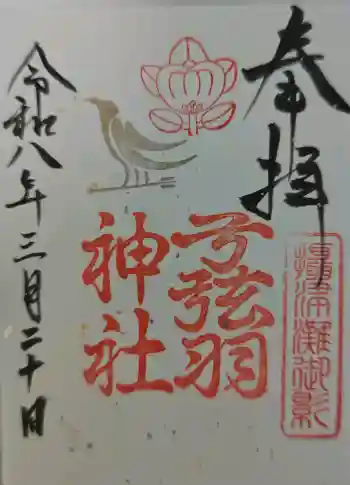 奉拝
攝津灘御影
弓弦羽
神社
令和八年三月二十日